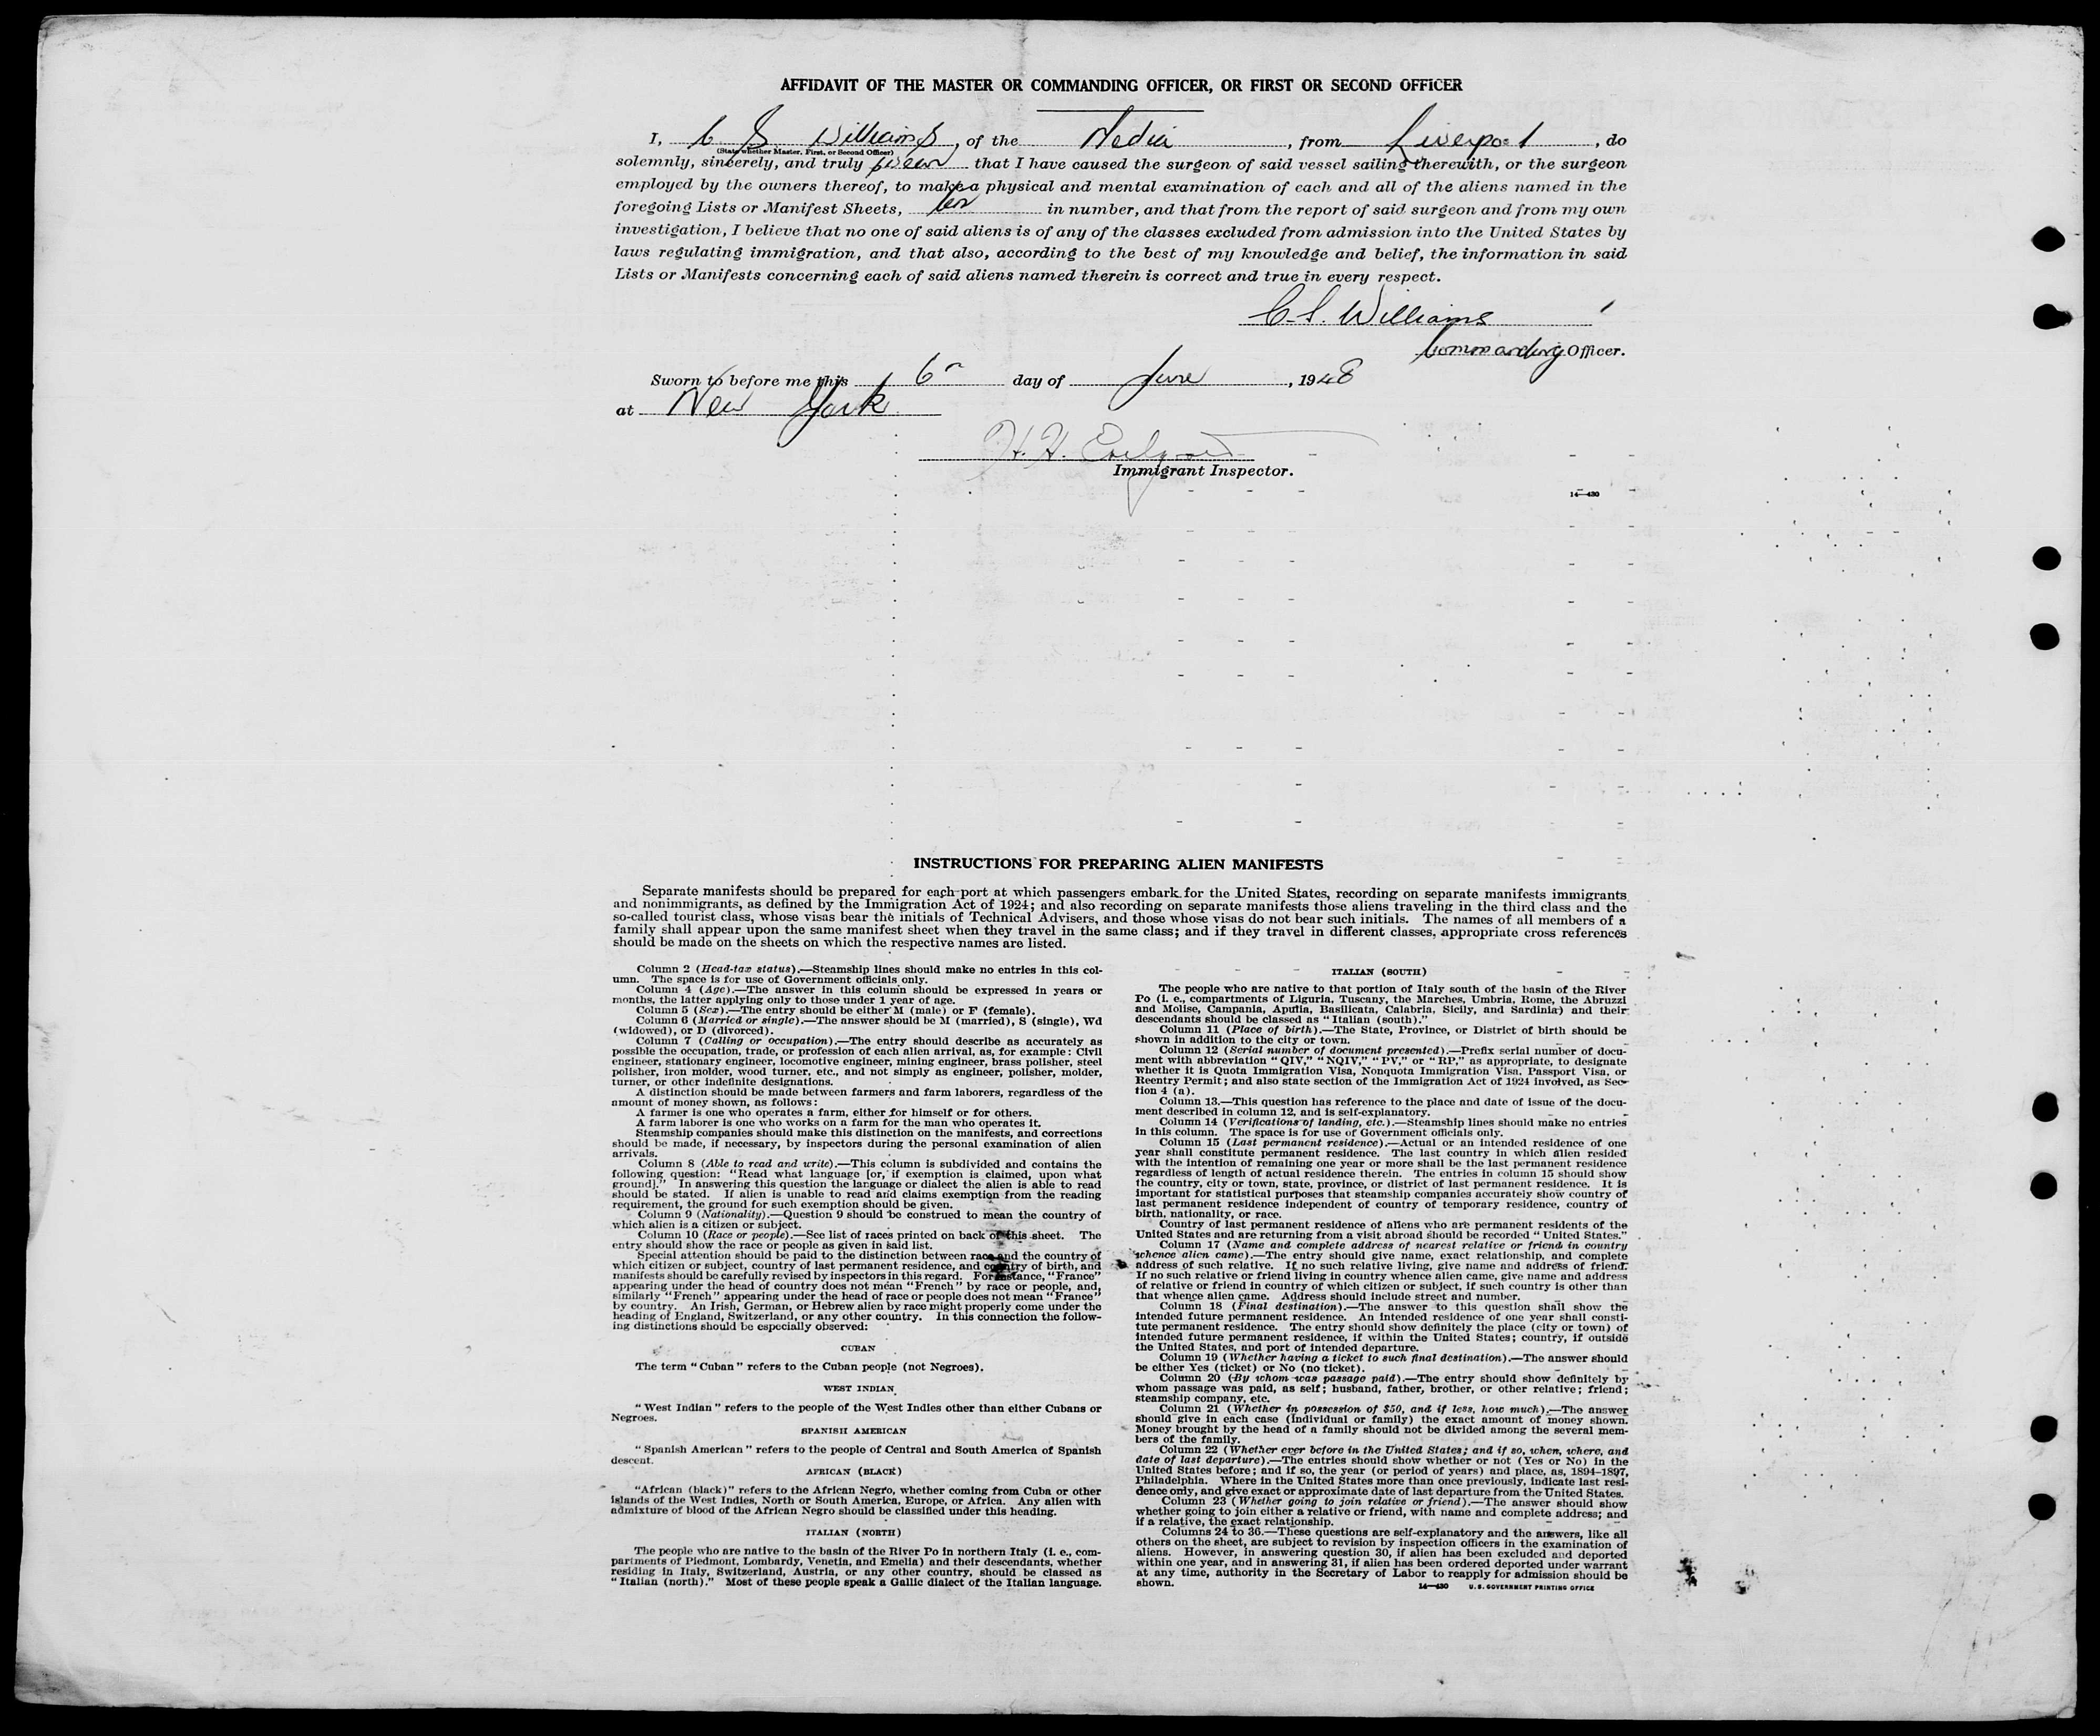 AFFIDAVIT OF THE MASTER OR COMMANDING OFFICER, OR FIRST OR SECOND OFFICER
I, C S Williams, of the Media, from Liverpool, do
(State whether Master, First, or Second Officer)
solemnly, sincerely, and truly swear that I have caused the surgeon of said vessel sailing therewith, or the surgeon
employed by the owners thereof, to make a physical and mental examination of each and all of the aliens named in the
foregoing Lists or Manifest Sheets, ten in number, and that from the report of said surgeon and from my own
investigation, I believe that no one of said aliens is of any of the classes excluded from admission into the United States by
laws regulating immigration, and that also, according to the best of my knowledge and belief, the information in said
Lists or Manifests concerning each of said aliens named therein is correct and true in every respect.
C. S. Williams
Commanding Officer.
Sworn to before me this 6 day of June, 1948
at New York
H. H.
Immigrant Inspector.
14—430
INSTRUCTIONS FOR PREPARING ALIEN MANIFESTS
Separate manifests should be prepared for each port at which passengers embark for the United States, recording on separate manifests immigrants
and nonimmigrants, as defined by the Immigration Act of 1924; and also recording on separate manifests those aliens traveling in the third class and the
so-called tourist class, whose visas bear the initials of Technical Advisers, and those whose visas do not bear such initials. The names of all members of a
family shall appear upon the same manifest sheet when they travel in the same class; and if they travel in different classes, appropriate cross references
should be made on the sheets on which the respective names are listed.
Column 2 (Head-tax status).—Steamship lines should make no entries in this col-
umn. The space is for use of Government officials only.
Column 4 (Age).—The answer in this column should be expressed in years or
months, the latter applying only to those under 1 year of age.
Column 5 (Sex).—The entry should be either M (male) or F (female).
Column 6 (Married or single).—The answer should be M (married), S (single), Wd
(widowed), or D (divorced).
Column 7 (Calling or occupation).—The entry should describe as accurately as
possible the occupation, trade, or profession of each alien arrival, as, for example: Civil
engineer, stationary engineer, locomotive engineer, mining engineer, brass polisher, steel
polisher, iron molder, wood turner, etc., and not simply as engineer, polisher, molder,
turner, or other indefinite designations.
A distinction should be made between farmers and farm laborers, regardless of the
amount of money shown, as follows:
A farmer is one who operates a farm, either for himself or for others.
A farm laborer is one who works on a farm for the man who operates it.
Steamship companies should make this distinction on the manifests, and corrections
should be made, if necessary, by inspectors during the personal examination of alien
arrivals.
Column 8 (Able to read and write).—This column is subdivided and contains the
following question: "Read what language [or, if exemption is claimed, upon what
ground]." In answering this question the language or dialect the alien is able to read
should be stated. If alien is unable to read and claims exemption from the reading
requirement, the ground for such exemption should be given.
Column 9 (Nationality).—Question 9 should be construed to mean the country of
which alien is a citizen or subject.
Column 10 (Race or people).—See list of races printed on back of this sheet. The
entry should show the race or people as given in said list.
Special attention should be paid to the distinction between race and the country of
which citizen or subject, country of last permanent residence, and country of birth, and
manifests should be carefully revised by inspectors in this regard. For instance, "France"
appearing under the head of country does not mean "French" by race or people, and,
similarly "French" appearing under the head of race or people does not mean "France"
by country. An Irish, German, or Hebrew alien by race might properly come under the
heading of England, Switzerland, or any other country. In this connection the follow-
ing distinctions should be especially observed:
CUBAN
The term "Cuban" refers to the Cuban people (not Negroes).
WEST INDIAN
"West Indian" refers to the people of the West Indies other than either Cubans or
Negroes.
SPANISH AMERICAN
"Spanish American" refers to the people of Central and South America of Spanish
descent.
AFRICAN (BLACK)
"African (black)" refers to the African Negro, whether coming from Cuba or other
islands of the West Indies, North or South America, Europe, or Africa. Any alien with
admixture of blood of the African Negro should be classified under this heading.
ITALIAN (NORTH)
The people who are native to the basin of the River Po in northern Italy (i. e., com-
partments of Piedmont, Lombardy, Venetia, and Emelia) and their descendants, whether
residing in Italy, Switzerland, Austria, or any other country, should be classed as
"Italian (north)." Most of these people speak a Gallic dialect of the Italian language.
ITALIAN (SOUTH)
The people who are native to that portion of Italy south of the basin of the River
Po (i. e., compartments of Liguria, Tuscany, the Marches, Umbria, Rome, the Abruzzi
and Molise, Campania, Apulia, Basilicata, Calabria, Sicily, and Sardinia) and their
descendants should be classed as "Italian (south)."
Column 11 (Place of birth).—The State, Province, or District of birth should be
shown in addition to the city or town.
Column 12 (Serial number of document presented).—Prefix serial number of docu-
ment with abbreviation "QIV," "NQIV," "PV," or "RP," as appropriate, to designate
whether it is Quota Immigration Visa, Nonquota Immigration Visa, Passport Visa, or
Reentry Permit; and also state section of the Immigration Act of 1924 involved, as Sec-
tion 4 (a).
Column 13.—This question has reference to the place and date of issue of the docu-
ment described in column 12, and is self-explanatory.
Column 14 (Verifications of landing, etc.).—Steamship lines should make no entries
in this column. The space is for use of Government officials only.
Column 15 (Last permanent residence).—Actual or an intended residence of one
year shall constitute permanent residence. The last country in which alien resided
with the intention of remaining one year or more shall be the last permanent residence
regardless of length of actual residence therein. The entries in column 15 should show
the country, city or town, state, province, or district of last permanent residence. It is
important for statistical purposes that steamship companies accurately show country of
last permanent residence independent of country of temporary residence, country of
birth, nationality, or race.
Country of last permanent residence of aliens who are permanent residents of the
United States and are returning from a visit abroad should be recorded "United States."
Column 17 (Name and complete address of nearest relative or friend in country
whence alien came).—The entry should give name, exact relationship, and complete
address of such relative. If no such relative living, give name and address of friend.
If no such relative or friend living in country whence alien came, give name and address
of relative or friend in country of which citizen or subject, if such country is other than
that whence alien came. Address should include street and number.
Column 18 (Final destination).—The answer to this question shall show the
intended future permanent residence. An intended residence of one year shall consti-
tute permanent residence. The entry should show definitely the place (city or town) of
intended future permanent residence, if within the United States; country, if outside
the United States, and port of intended departure.
Column 19 (Whether having a ticket to such final destination).—The answer should
be either Yes (ticket) or No (no ticket).
Column 20 (By whom was passage paid).—The entry should show definitely by
whom passage was paid, as self; husband, father, brother, or other relative; friend;
steamship company, etc.
Column 21 (Whether in possession of $50, and if less, how much).—The answer
should give in each case (individual or family) the exact amount of money shown.
Money brought by the head of a family should not be divided among the several mem-
bers of the family.
Column 22 (Whether ever before in the United States; and if so, when, where, and
date of last departure).—The entries should show whether or not (Yes or No) in the
United States before; and if so, the year (or period of years) and place, as, 1894–1897,
Philadelphia. Where in the United States more than once previously, indicate last resi-
dence only, and give exact or approximate date of last departure from the United States.
Column 23 (Whether going to join relative or friend).—The answer should show
whether going to join either a relative or friend, with name and complete address; and
if a relative, the exact relationship.
Columns 24 to 36.—These questions are self-explanatory and the answers, like all
others on the sheet, are subject to revision by inspection officers in the examination of
aliens. However, in answering question 30, if alien has been excluded and deported
within one year, and in answering 31, if alien has been ordered deported under warrant
at any time, authority in the Secretary of Labor to reapply for admission should be
shown.
14—430 U. S. GOVERNMENT PRINTING OFFICE